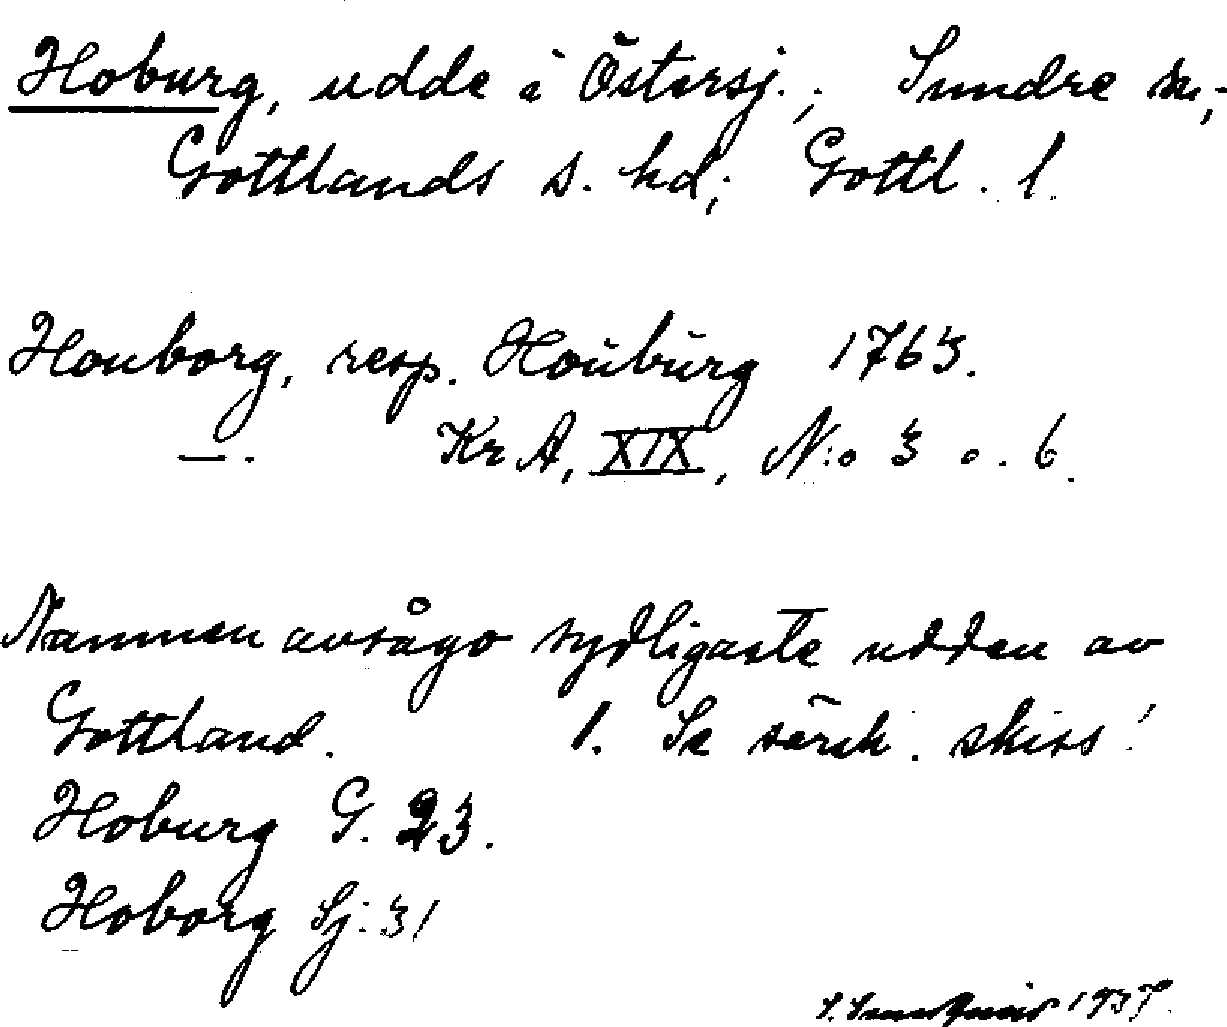 Hoburg, udde i Östersj.; Sundre sn;
Gottlands s. hd; Gottl. l.
Houborg, resp. Houburg 1763.
—. Kr A, XIX, N:o 3 o. 6.
Namnen avsågo sydligaste udden av
Gottland. 1. Se särsk. skiss!
Hoburg G. 23.
Hoborg Sj: 31